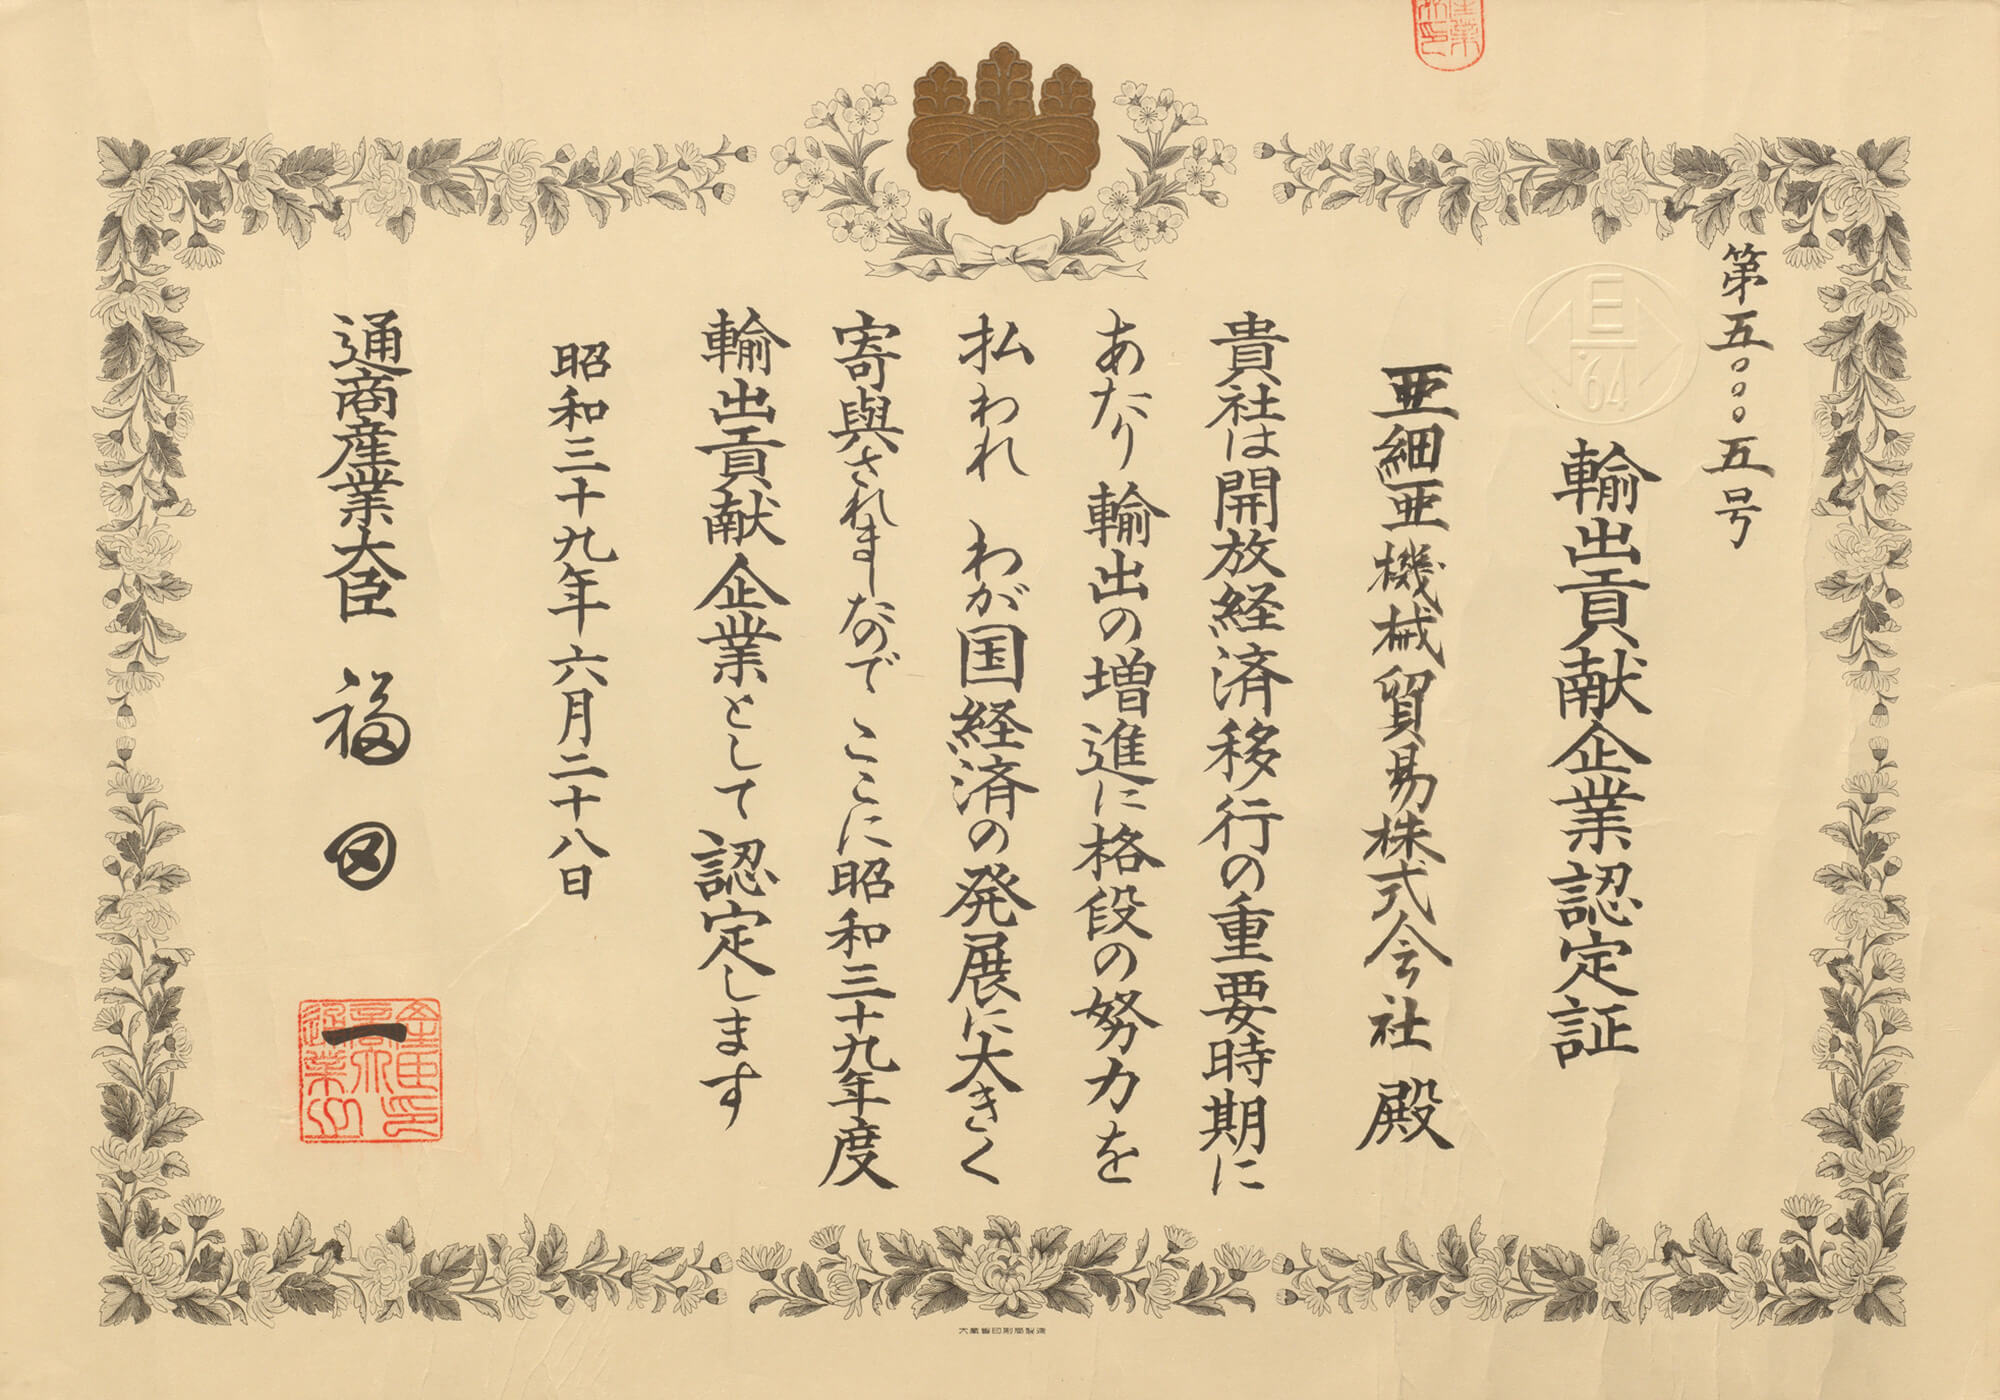 第五〇〇〇五号
輸出貢献企業認定証
亜細亜機械貿易株式会社 殿
貴社は開放経済移行の重要時期に
あたり輸出の増進に格段の努力を
払われ わが国経済の発展に大きく
寄與されましたので ここに昭和三十九年度
輸出貢献企業として認定します
昭和三十九年六月二十八日
通商産業大臣 福田一
E
'64
大蔵省印刷局製造